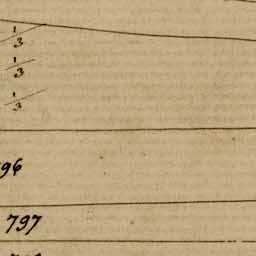 1/3
1/3
1/3
96
797